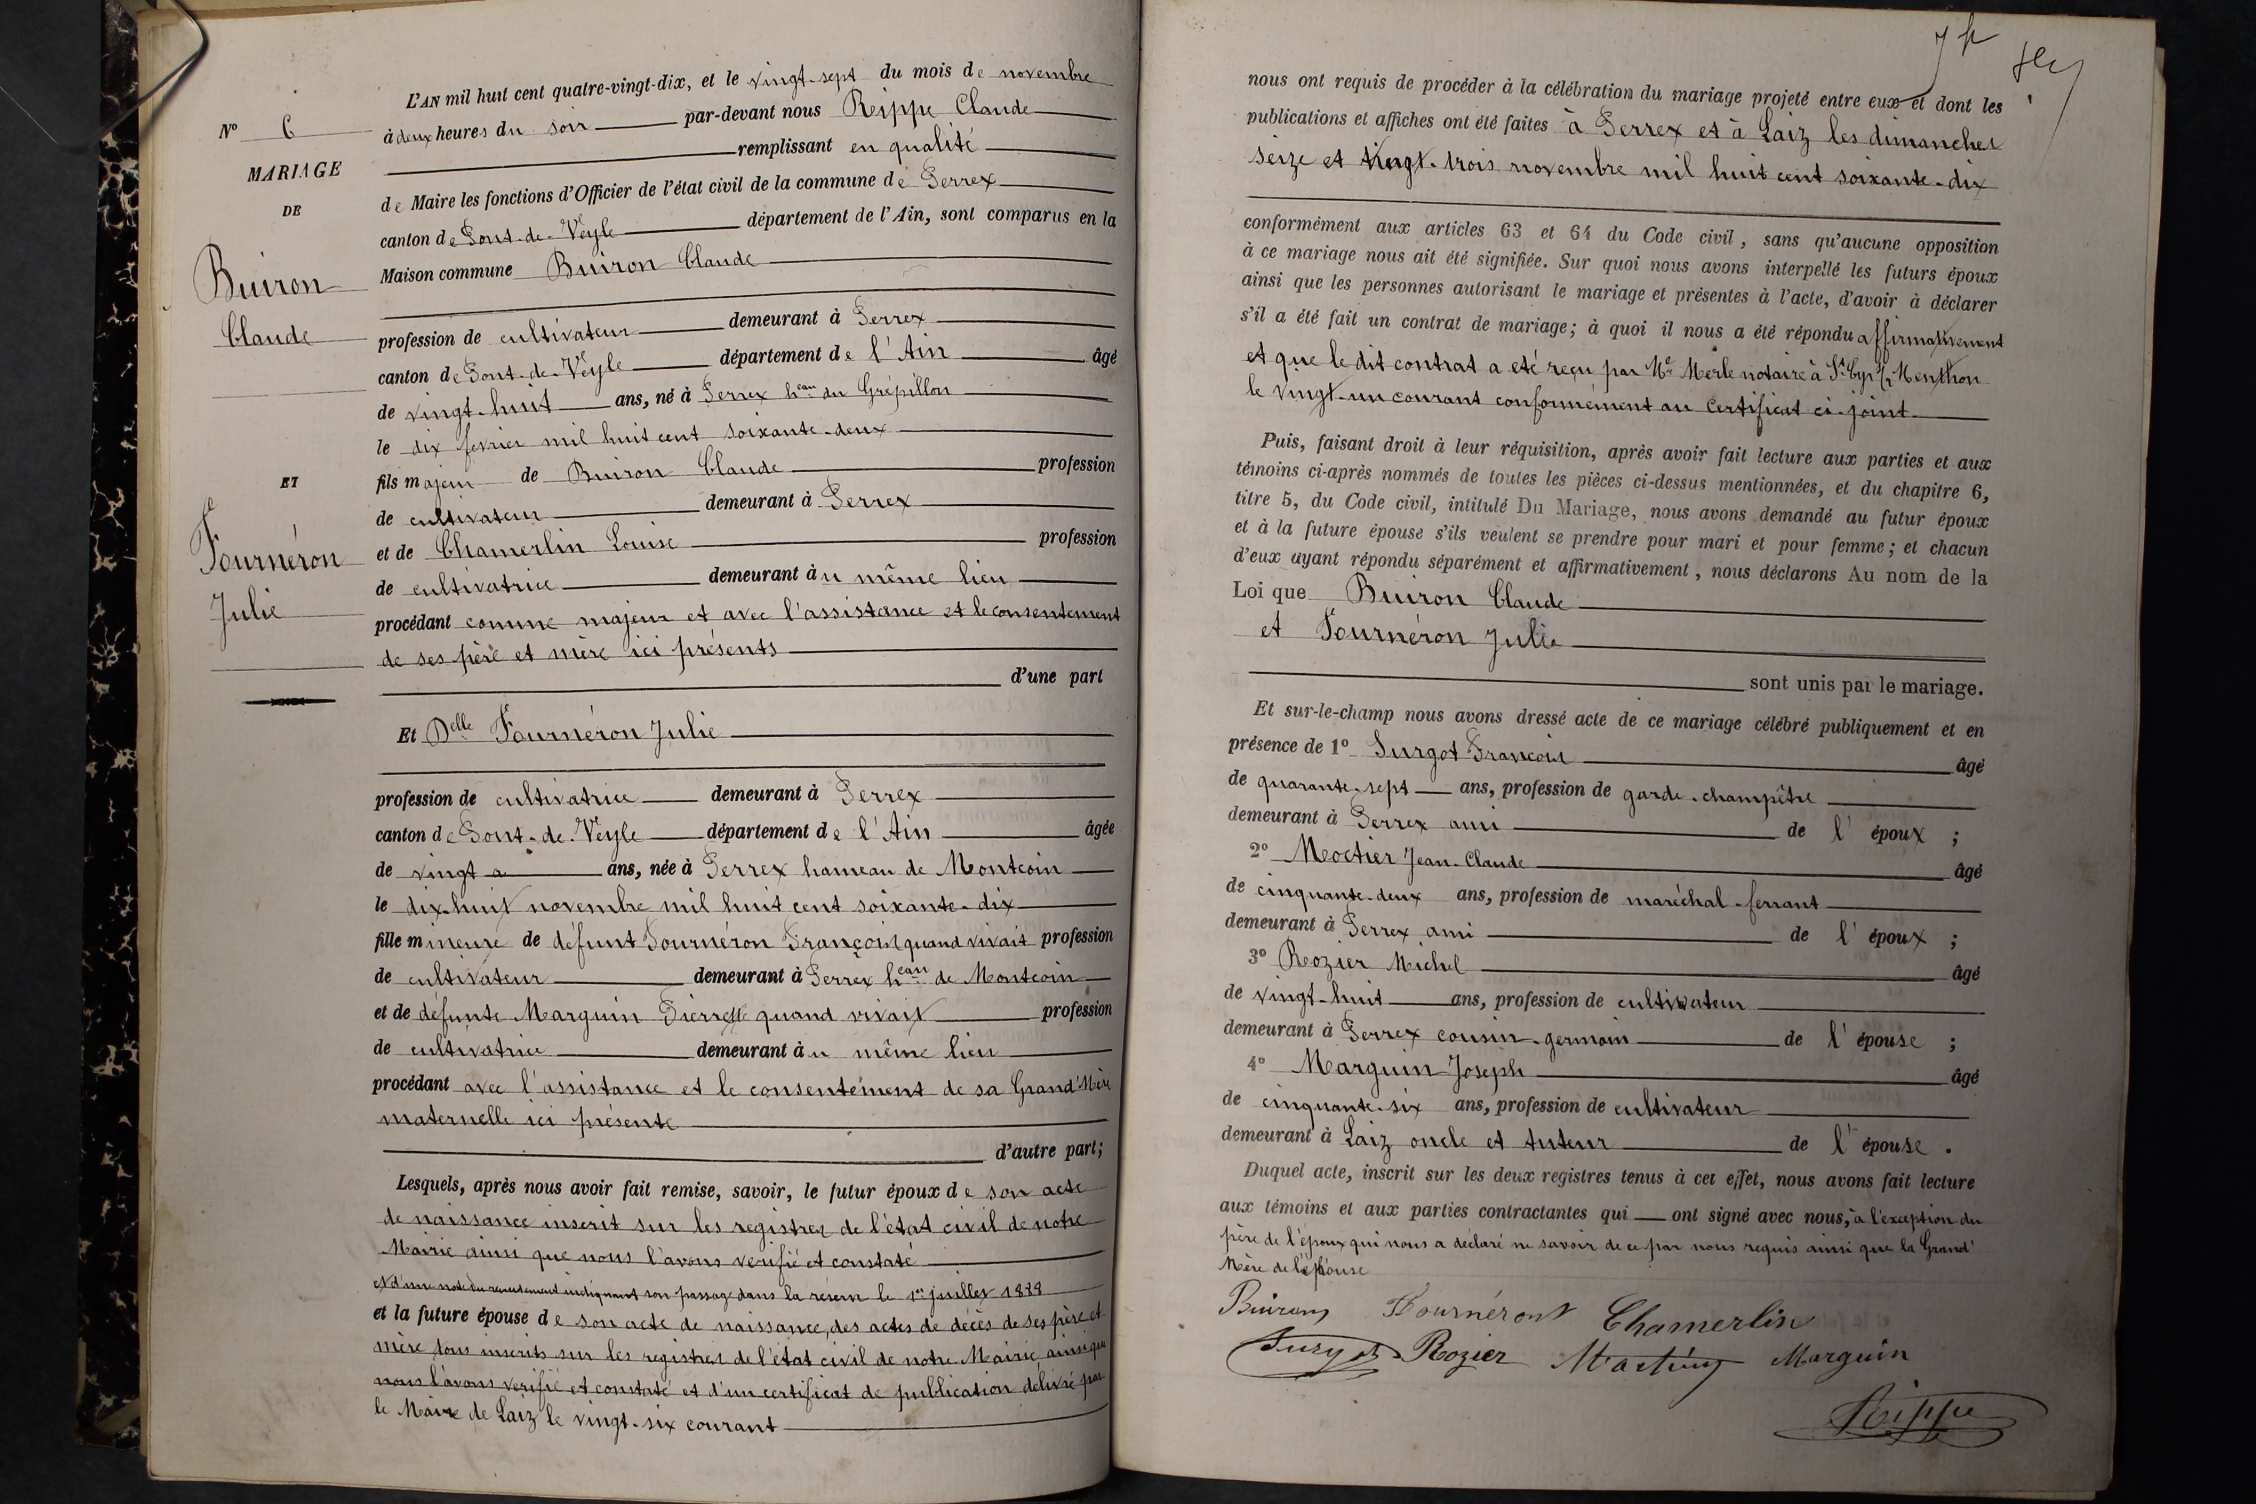 L'AN mil huit cent quatre-vingt-dix, et le vingt-sept du mois de novembre
à deux heures du soir par-devant nous Rippe Claude
remplissant en qualité
de Maire les fonctions d'Officier de l'état civil de la commune de Perrex
canton de Pont-de-Veyle département de l'Ain, sont comparus en la
Maison commune Buiron Claude
profession de cultivateur demeurant à Perrex
canton de Pont-de-Veyle département de l'Ain âgé
de vingt-huit ans, né à Perrex heau du Grépillon
le dix fevrier mil huit cent soixante-deux
fils majeur de Buiron Claude profession
de cultivateur demeurant à Perrex
et de Chamerlin Louise profession
de cultivatrice demeurant àu même lieu
procédant comme majeur et avec l'assistance et le consentement
de ses père et mère ici présents
d'une part
Et Delle Fournéron Julie
profession de cultivatrice demeurant à Perrex
canton de Pont-de-Veyle département de l'Ain âgée
de vingt a ans, née à Perrex hameau de Montcoin
le dix-huit novembre mil huit cent soixante-dix
fille mineure de défunt Fournéron François quand vivait profession
de cultivateur demeurant à Perrex heau de Montcoin
et de défunte Marguin Pierrette quand vivait profession
de cultivatrice demeurant àu même lieu
procédant avec l'assistance et le consentement de sa Grand'Mère
maternelle ici présente
d'autre part;
Lesquels, après nous avoir fait remise, savoir, le futur époux de son acte
de naissance inscrit sur les registres de l'état civil de notre
Mairie ainsi que nous l'avons verifié et constaté
et d'une note du recrutement indiquant son passage dans la réserve le 1er juillet 1888
et la future épouse de son acte de naissance, des actes de décès de ses père et
mère tous inscrits sur les registres de l'état civil de notre Mairie ainsi que
nous l'avons verifié et constaté et d'un certificat de publication délivré par
le Maire de Laiz le vingt-six courant
No 6
MARIAGE
DE
Buiron
Claude
ET
Fournéron
Julie
nous ont requis de procéder à la célébration du mariage projeté entre eux et dont les
publications et affiches ont été faites à Perrex et à Laiz les dimanches
seize et vingt-trois novembre mil huit cent soixante-dix
conformément aux articles 63 et 64 du Code civil, sans qu'aucune opposition
à ce mariage nous ait été signifiée. Sur quoi nous avons interpellé les futurs époux
ainsi que les personnes autorisant le mariage et présentes à l'acte, d'avoir à déclarer
s'il a été fait un contrat de mariage; à quoi il nous a été répondu affirmativement
et que le dit contrat a eté reçu par Me Merle notaire à St Cyr s/ Menthon
le vingt-un courant conformément au Certificat ci-joint
Puis, faisant droit à leur réquisition, après avoir fait lecture aux parties et aux
témoins ci-après nommés de toutes les pièces ci-dessus mentionnées, et du chapitre 6,
titre 5, du Code civil, intitulé Du Mariage, nous avons demandé au futur époux
et à la future épouse s'ils veulent se prendre pour mari et pour femme; et chacun
d'eux ayant répondu séparément et affirmativement, nous déclarons Au nom de la
Loi que Buiron Claude
et Fournéron Julie
sont unis par le mariage.
Et sur-le-champ nous avons dressé acte de ce mariage célébré publiquement et en
présence de 1o Surgot François âgé
de quarante-sept ans, profession de garde-champêtre
demeurant à Perrex ami de l'époux ;
2o Moctier Jean-Claude âgé
de cinquante-deux ans, profession de maréchal-ferrant
demeurant à Perrex ami de l'époux ;
3o Rozier Michel âgé
de vingt-huit ans, profession de cultivateur
demeurant à Perrex cousin-germain de l'épouse ;
4o Marguin Joseph âgé
de cinquante-six ans, profession de cultivateur
demeurant à Laiz oncle et tuteur de l'épouse .
Duquel acte, inscrit sur les deux registres tenus à cet effet, nous avons fait lecture
aux témoins et aux parties contractantes qui ont signé avec nous, à l'exception du
père de l'époux qui nous a déclaré ne savoir de ce par nous requis ainsi que la Grand'
Mère de l'épouse
Buiron Fournéront Chamerlin
Rozier Marguin
Rippe